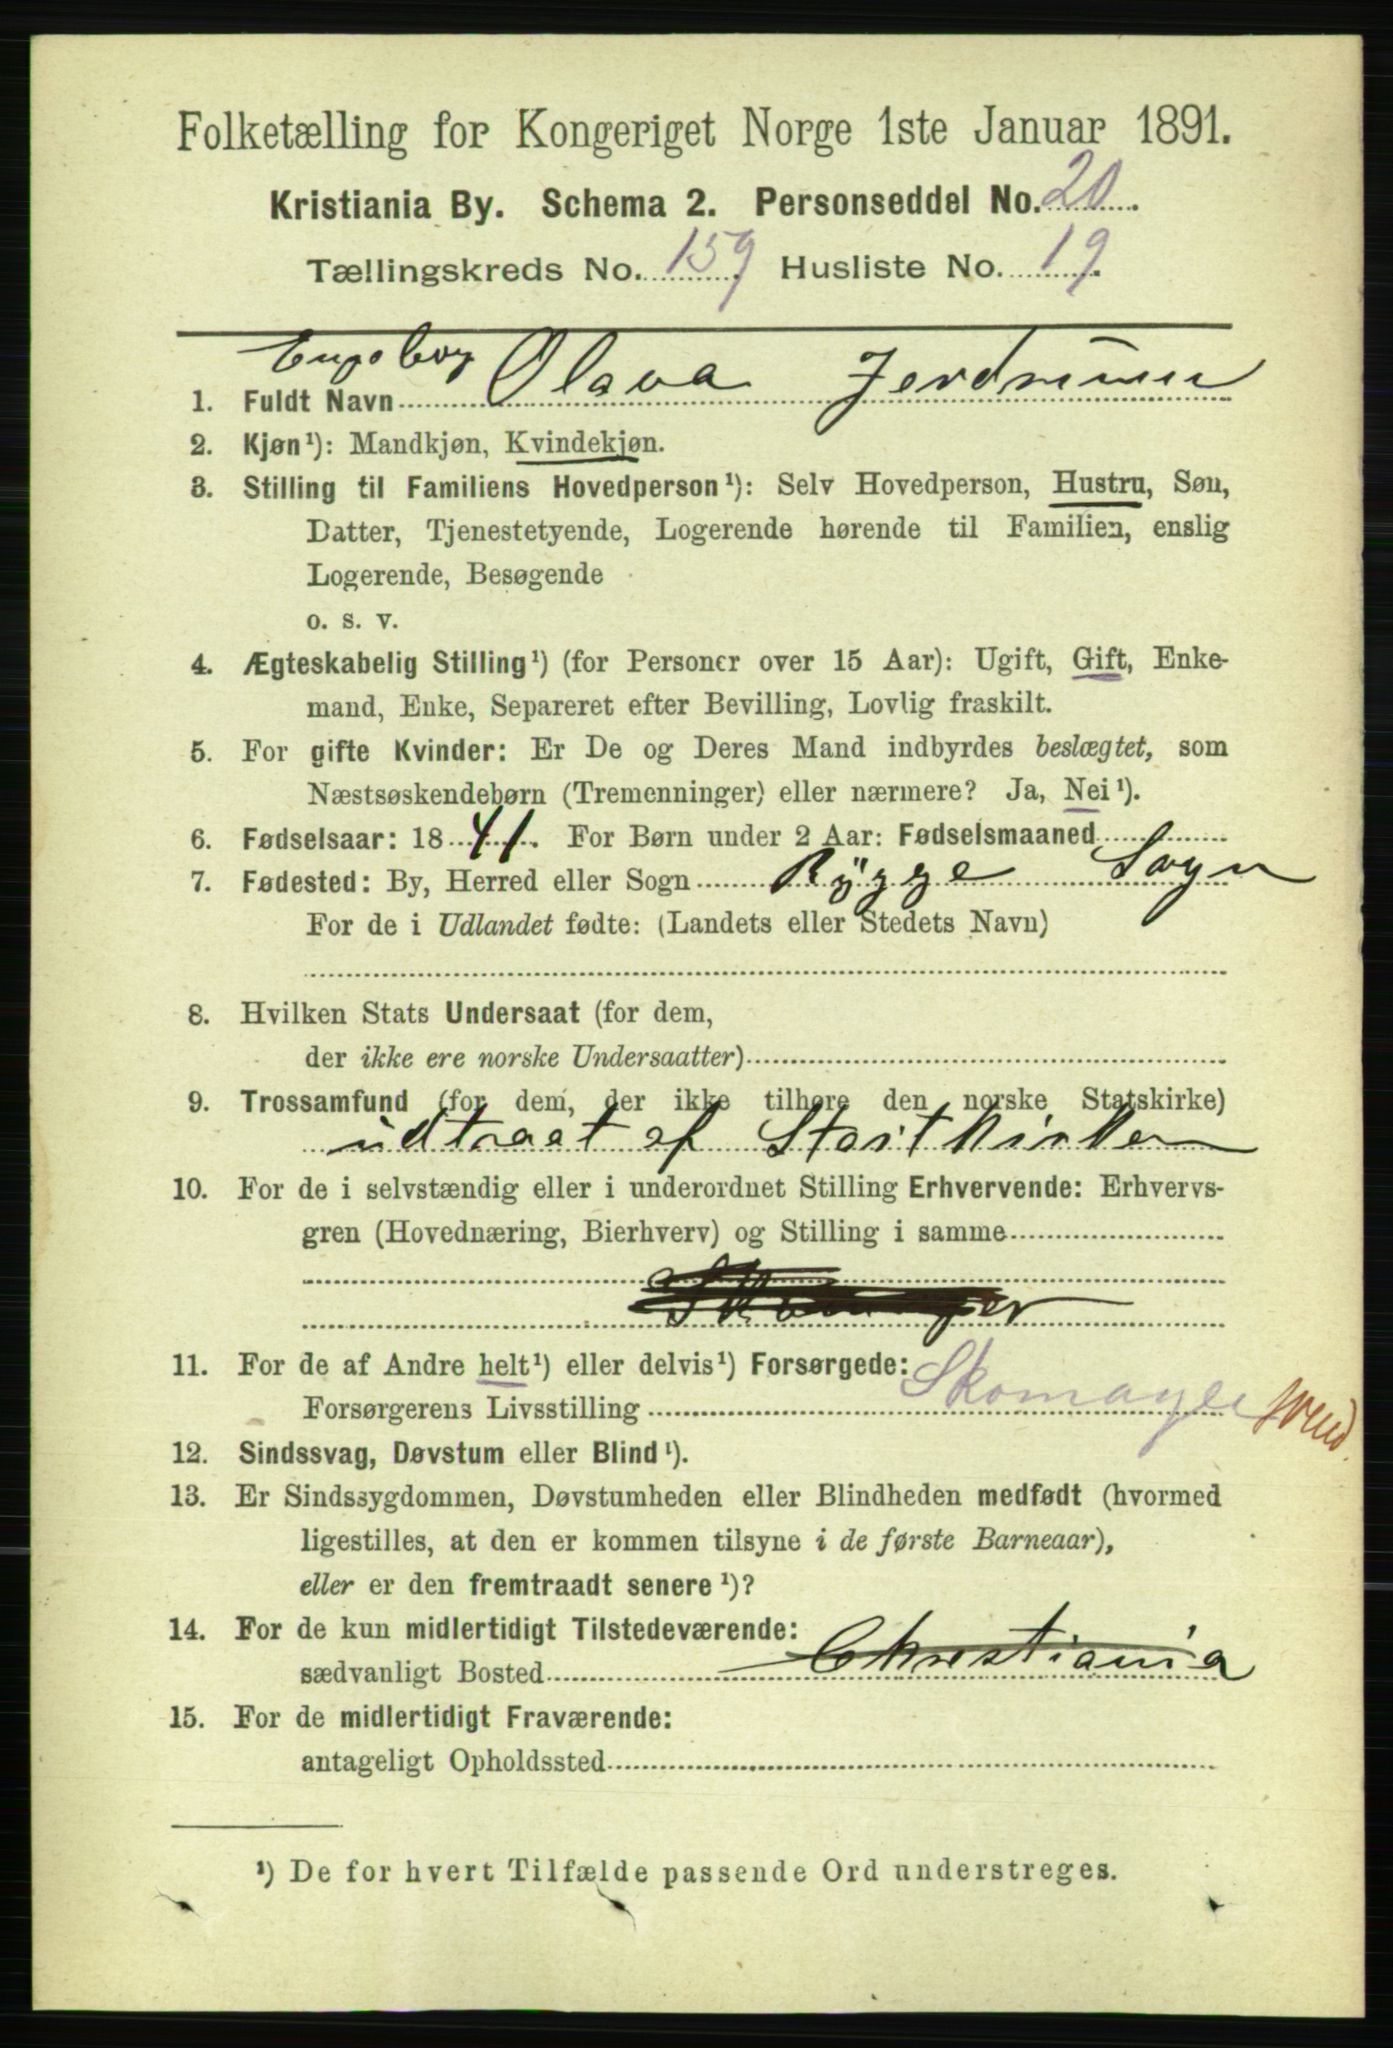 Folketælling for Kongeriget Norge 1ste Januar 1891.
Kristiania By. Schema 2. Personseddel No. 20.
Tællingskreds No. 159. Husliste No. 19.
Olava
1. Fuldt Navn
2. Kjøn¹): Mandkjøn, Kvindekjøn.
3. Stilling til Familiens Hovedperson¹): Selv Hovedperson, Hustru, Søn,
Datter, Tjenestetyende, Logerende hørende til Familien, enslig
Logerende, Besøgende
o. s. v.
4. Ægteskabelig Stilling¹) (for Personer over 15 Aar): Ugift, Gift, Enke-
mand, Enke, Separeret efter Bevilling, Lovlig fraskilt.
5. For gifte Kvinder: Er De og Deres Mand indbyrdes beslægtet, som
Næstsøskendebørn (Tremenninger) eller nærmere? Ja, Nei¹).
6. Fødselsaar: 1841. For Børn under 2 Aar: Fødselsmaaned
7. Fødested: By, Herred eller Sogn Rygge Sogn
For de i Udlandet fødte: (Landets eller Stedets Navn)
8. Hvilken Stats Undersaat (for dem,
der ikke ere norske Undersaatter)
9. Trossamfund (for dem, der ikke tilhøre den norske Statskirke)
udtraat af
10. For de i selvstændig eller i underordnet Stilling Erhvervende: Erhvervs-
gren (Hovednæring, Bierhverv) og Stilling i samme
11. For de af Andre helt¹) eller delvis¹) Forsørgede:
Forsørgerens Livsstilling Skomager svend
12. Sindssvag, Døvstum eller Blind¹).
13. Er Sindssygdommen, Døvstumheden eller Blindheden medfødt (hvormed
ligestilles, at den er kommen tilsyne i de første Barneaar),
eller er den fremtraadt senere¹)?
14. For de kun midlertidigt Tilstedeværende:
sædvanligt Bosted Christiania
15. For de midlertidigt Fraværende:
antageligt Opholdssted
¹) De for hvert Tilfælde passende Ord understreges.